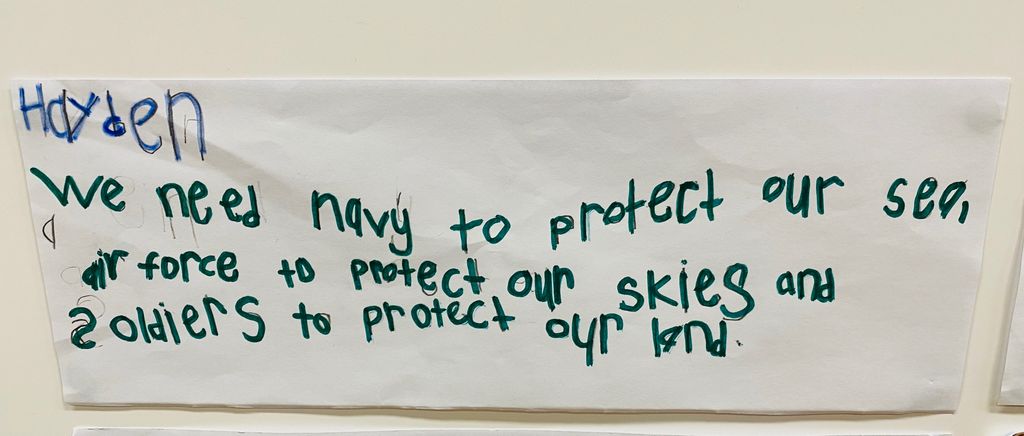 Hayden
We need navy to protect our sea,
air force to protect our skies and
soldiers to protect our land.